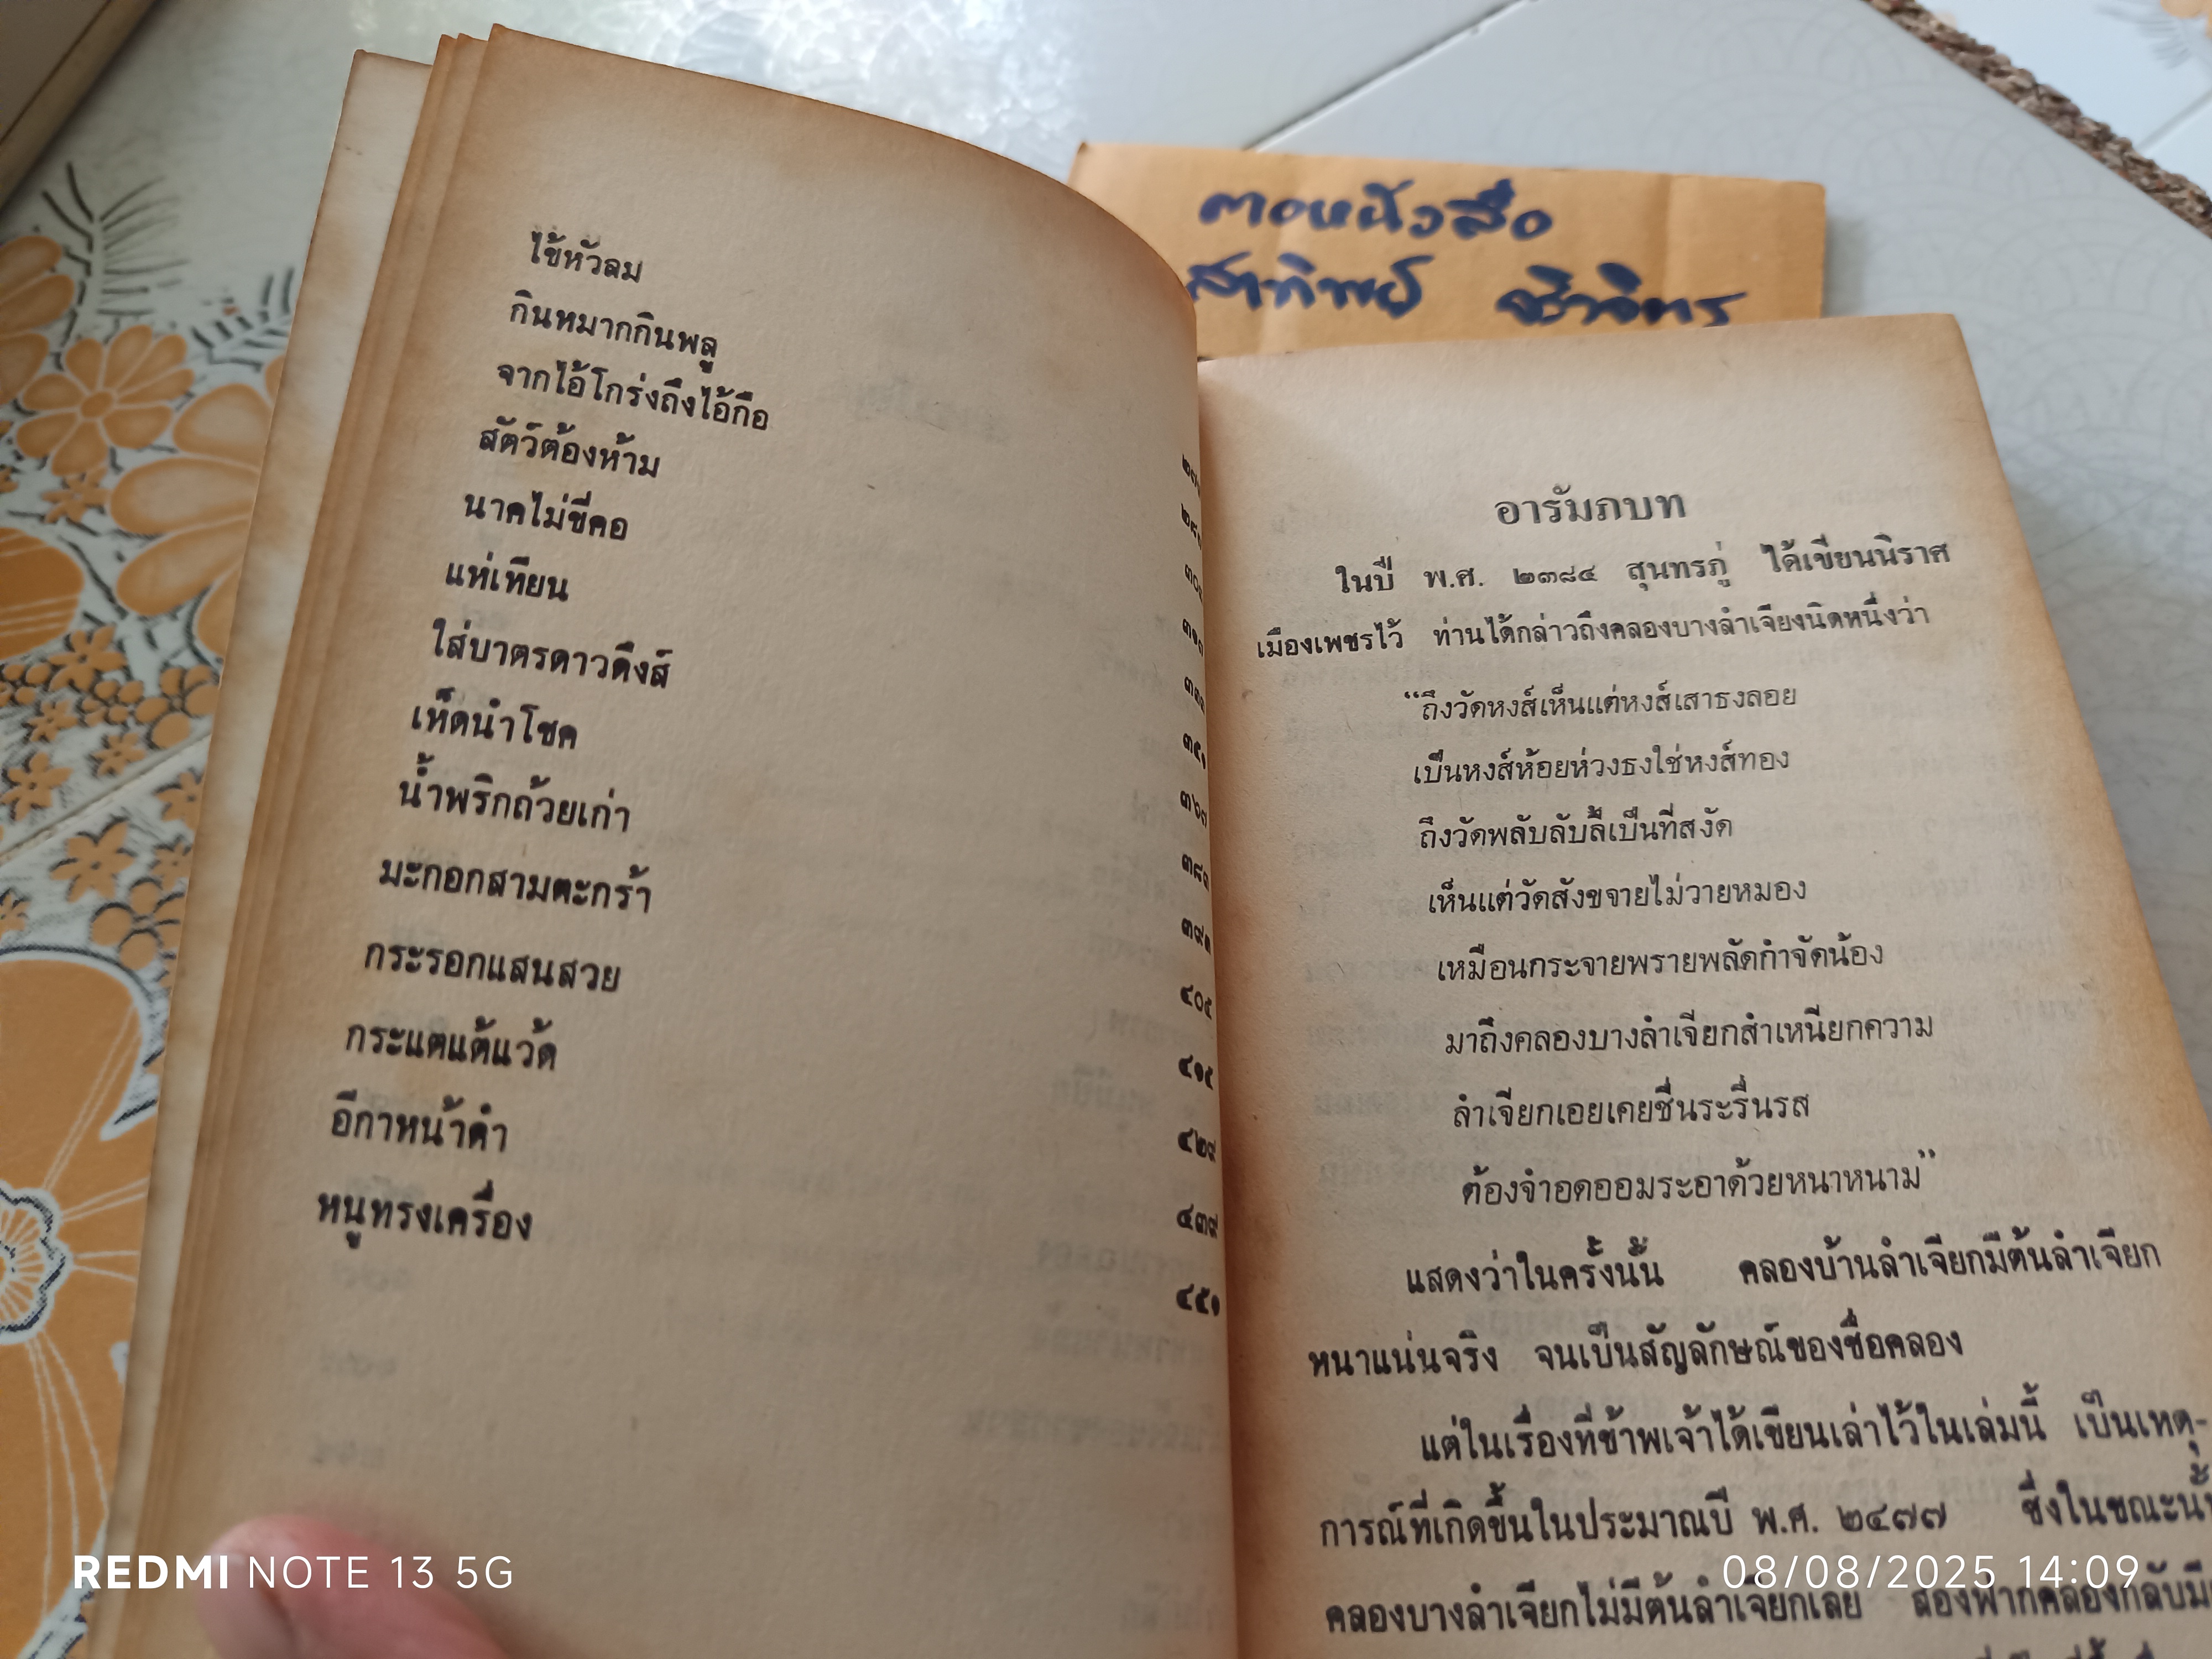 ไข้หัวลม
กินหมากกินพลู
จากไอ้โกร่งถึงไอ้กือ
สัตว์ต้องห้าม
นาคไม่ขี่คอ
แห่เทียน
ใส่บาตรดาวดึงส์
เห็ดนำโชค
น้ำพริกถ้วยเก่า
มะกอกสามตะกร้า
กระรอกแสนสวย
กระแตแต้แว้ด
อีกาหน้าดำ
หนูทรงเครื่อง
๓๕๑
๓๖๓
๔๐๕
๔๑๕
๔๒๙
๔๓๙
๔๕๑
ตอหนังสือ
สาทิพย์
อารัมภบท
ในปี พ.ศ. ๒๓๘๔ สุนทรภู่ ได้เขียนนิราศ
เมืองเพชรไว้ ท่านได้กล่าวถึงคลองบางลำเจียงนิดหนึ่งว่า
“ถึงวัดหงส์เห็นแต่หงส์เสาธงลอย
เป็นหงส์ห้อยห่วงธงใช่หงส์ทอง
ถึงวัดพลับลับลี้เป็นที่สงัด
เห็นแต่วัดสังขจายไม่วายหมอง
เหมือนกระจายพรายพลัดกำจัดน้อง
มาถึงคลองบางลำเจียกสำเหนียกความ
ลำเจียกเอยเคยชื่นระรื่นรส
ต้องจำอดออมระอาด้วยหนาหนาม”
แสดงว่าในครั้งนั้น คลองบ้านลำเจียกมีต้นลำเจียก
หนาแน่นจริง จนเป็นสัญลักษณ์ของชื่อคลอง
แต่ในเรื่องที่ข้าพเจ้าได้เขียนเล่าไว้ในเล่มนี้ เป็นเหตุ-
การณ์ที่เกิดขึ้นในประมาณปี พ.ศ. ๒๔๗๗ ซึ่งในขณะนั้น
คลองบางลำเจียกไม่มีต้นลำเจียกเลย สองฟากคลองกลับมี
REDMI NOTE 13 5G
08/08/2025 14:09